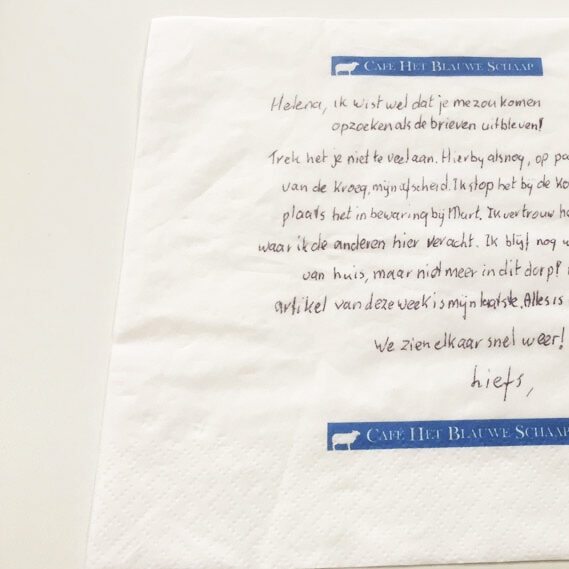 CAFÉ HET BLAUWE SCHAAP
Helena, ik wist wel dat je me zou komen
opzoeken als de brieven uitbleven!
Trek het je niet te veel aan. Hierbij alsnog, op pa
van de kroeg, mijn afscheid. Ik stop het bij de ko
plaats het in bewaring bij Mart. Ik vertrouw h
waar ik de anderen hier veracht. Ik blijf nog w
van huis, maar niet meer in dit dorp!
artikel van deze week is mijn laatste. Alles is
We zien elkaar snel weer!
liefs,
CAFÉ HET BLAUWE SCHAAP